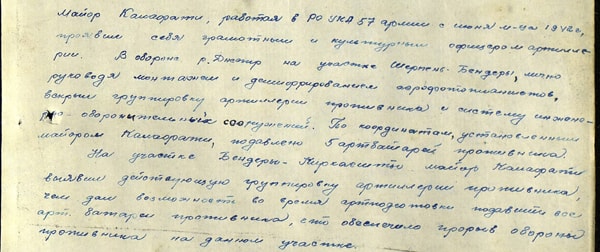 Майор Калафати, работая в РО УКА 57 армии с июня м-ца 1942 г.,
проявил себя грамотным и культурным офицером артилле-
рии. В обороне р. Днестр на участке Шерпень-Бендеры, лично
руководя монтажем и дешифрированием аэрофотопланшетов,
вскрыл группировку артиллерии противника и систему инжене-
рно-оборонительных сооружений. По координатам, установленным
майором Калафати, подавлено 5 артбатарей противника.
На участке Бендеры-Киркаешты майор Калафати
выявил действующую группировку артиллерии противника,
чем дал возможность во время артподготовки подавить все
арт. батареи противника, что обеспечило прорыв обороны
противника на данном участке.